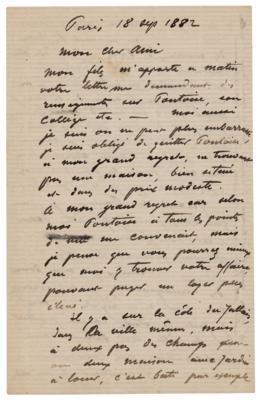 Paris, 18 sep 1882
Mon cher Ami
Mon fils m'apporte ce matin
votre lettre me demandant des
renseignements sur Pontoise, son
collège etc. — moi aussi
je suis on ne peut plus embarrassé
je suis obligé de quitter Pontoise,
à mon grand regret, ne trouvant
pas une maison, bien située
et dans des prix modeste.
A mon grand regret car selon
moi Pontoise à tous les points
de vue me convenait, mais
je pense que vous pourrez mieux
que moi y trouver votre affaire
pouvant payer un loyer plus
élevé.
il y a sur la côte du Jallais,
dans la ville même, mais
à deux pas des champs
ou deux maison avec jardin
à louer, c'est bâti par exemple